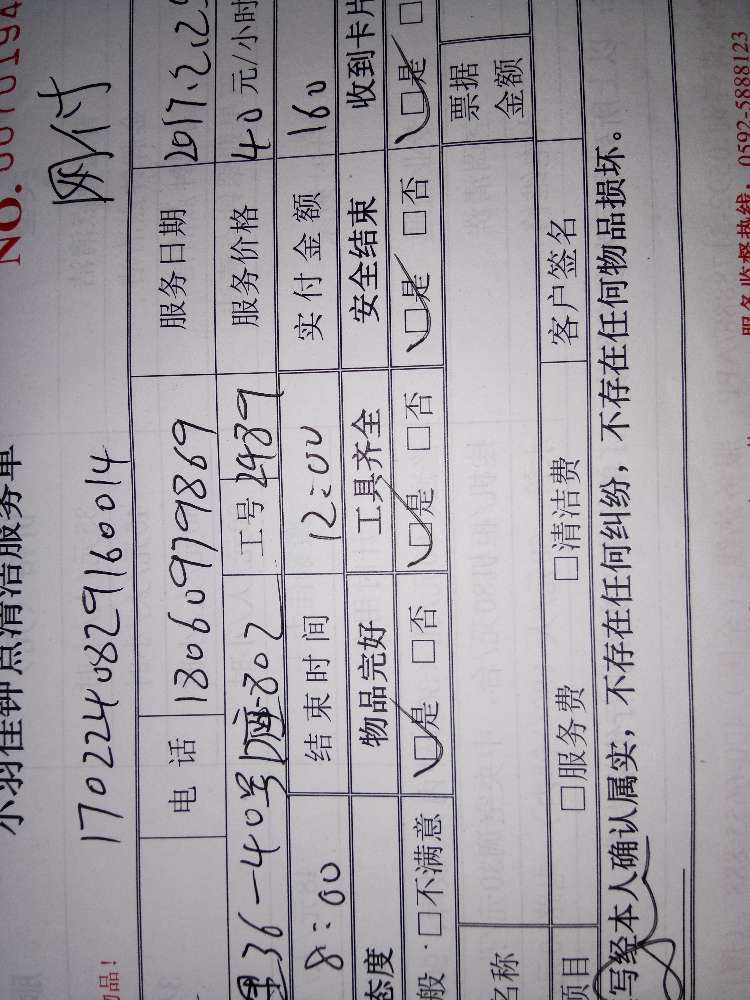 NO.0070194
小羽佳钟点清洁服务单
1702240829160014 网付
电话 13060979869 服务日期 2017.2.25
36-40号 802 工号 2439 服务价格 40元/小时
8:00 结束时间 12:00 实付金额 160
态度 物品完好 工具齐全 安全结束 收到卡片
般 □不满意 □是 □否 □是 □否 □是 □否 □是 □
名称 票据金额
项目 □服务费 □清洁费 客户签名
写经本人确认属实，不存在任何纠纷，不存在任何物品损坏。
物品！ 服务监督热线 0592-5888123